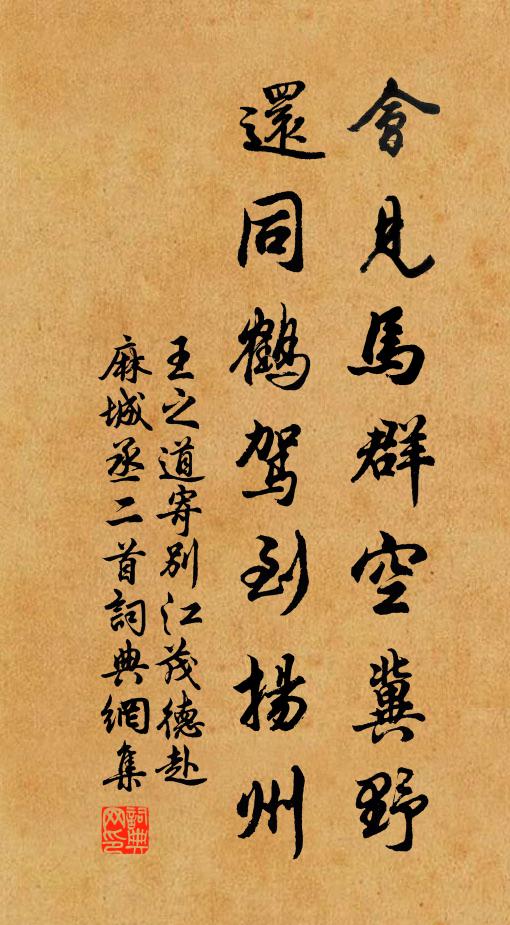 會見馬群空冀野
還同鶴駕到揚州
王之道寄別江茂德赴
麻城丞二首詞典網集
詞典网印